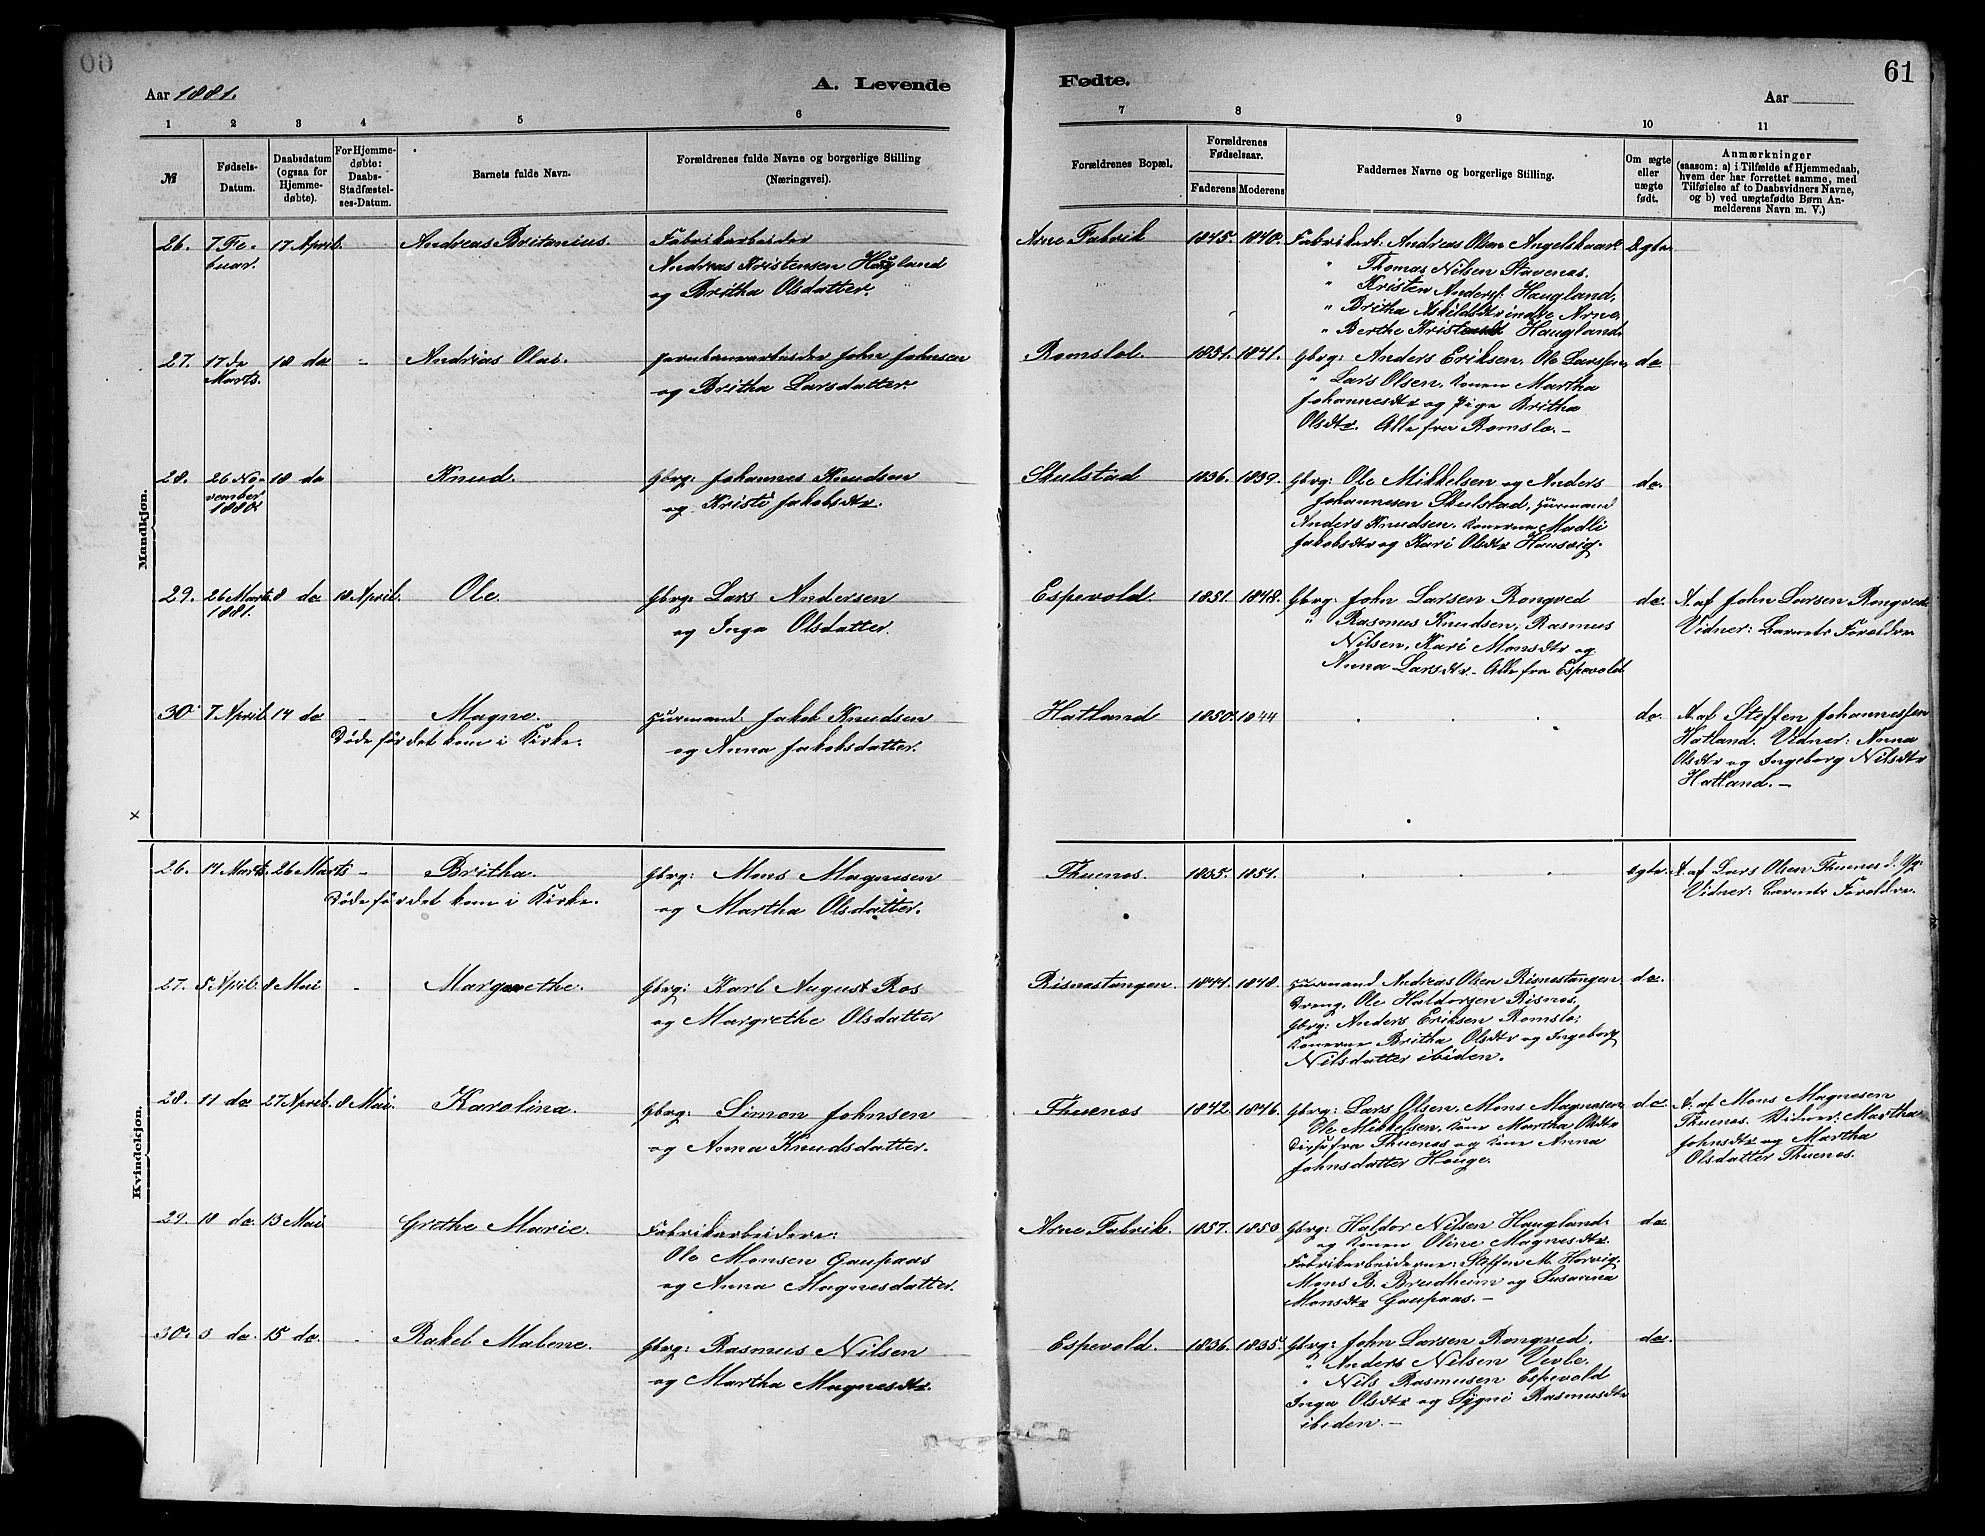 Aar 1881.
A. Levende
Fødte.
61
Aar
1 2 3 4 5 6 7 8 9 10 11
№
Fødsels-
Datum.
Daabsdatum
(ogsaa for
Hjemme-
døbte).
For Hjemme-
døbte:
Daabs-
Stadfæstel-
ses-Datum.
Barnets fulde Navn.
Forældrenes fulde Navne og borgerlige Stilling
(Næringsvei).
Forældrenes Bopæl.
Forældrenes
Fødselsaar.
Faderens Moderens
Faddernes Navne og borgerlige Stilling.
Om ægte
eller
uægte
født.
Anmærkninger
(saasom: a) i Tilfælde af Hjemmedaab,
hvem der har forrettet samme, med
Tilføielse af to Daabsvidners Navne,
og b) ved uægtefødte Børn An-
melderens Navn m. V.)
Mandkjøn.
26. 7 Fe- 17 April. Andreas Britanius. Fabrikarbeider Arne Fabrik 1845. 1840. Fabrikarb: Andreas Olsen Angelskaar
buar. Andreas Kristensen Haugland " Thomas Nilsen Stavenes.
og Britha Olsdatter. " Kristen Anders. Haugland,
" Britha Askildsdtr indre Arne,
" Berthe Haugland.
27. 17 de 18 do - Andreas Olai. Jernbanearbeider John Johnsen Romslol. 1851. 1841. Gbrg: Anders Eriksen, Ole Larssen, do
Marts. og Britha Larsdatter. " Lars Olsen, Konen Martha
Johannesdtr og Pige Britha
Olsdtr. Alle fra Romslo. -
28. 26 No- 18 do Knud. Gbrg: Johannes Knudsen Skulstad 1836. 1839. Gbrg: Ole Mikkelsen og Anders do.
vember og Kristi Jakobsdtr. Johannesen Skulstad, Huusmand
1880. Anders Knudsen, Konerne Madli
Jakobsdtr og Kari Olsdtr Hausvig.
29. 26 Marts 8 do 18 April. Ole. Gbrg: Lars Andersen Espevold. 1851. 1848. Gbrg: John Larsen Rongved do. A. af John Larsen Rongved.
1881. og Inga Olsdatter. " Rasmus Knudsen, Rasmus Vidner: Barnets Forældre.
Nilsen, Kari Monsdtr og
Anna Larsdtr. - Alle fra Espevold
30. 7 April. 14 do - Magne. Huusmand Jakob Knudsen Hatland 1850. 1844 do. A. af Steffen Johannessen
Døde før det kom i Kirke. og Anna Jakobsdatter. Hatland. Vidner: Anna
Olsdtr og Ingeborg Nilsdtr
Hatland. -
x
Kvindekjøn.
26. 14 Marts. 26 Marts - Britha. Gbrg: Mons Magnesen Thuenes. 1835. 1851. Ægte. A. af Lars Olsen Thuenes
Døde før det kom i Kirke. og Martha Olsdatter. Vidner: Barnets Forældre.
27. 5 April. 8 Mai - Margrethe. Gbrg: Karl August Ros Risnestangen. 1844. 1848. Huusmand Andreas Olsen Risnestangen do.
og Margrethe Olsdatter Dreng, Ole Haldorsen Risnes,
Gbrg: Anders Eriksen Romslo,
Konerne Britha Olsdtr og Ingeborg
Nilsdatter ibiden.
28. 11 do 27 April. 8 Mai. Karolina. Gbrg: Simon Johnsen Thuenes 1842. 1846. Gbrg: Lars Olsen, Mons Magnesen do A. af Mons Magnesen
og Anna Knudsdatter. Ole Mikkelsen, Kone Martha Olsdtr Thuenes. Vidner: Martha
fra Thuenes og Kone Anna Johnsdtr og Martha
Johnsdatter Houge. Olsdatter Thuenes.
29. 10 do. 13 Mai Grethe Marie. Fabrikarbeidere: Arne Fabrik. 1857. 1850 Gbrg: Haldor Nilsen Haugland do.
Ole Monsen Gaupaas og Konen Oline Magnesdtr.
og Anna Magnesdatter. Fabrikarbeiderne: Steffen M. Horvig,
Mons B. Brudheim og Susanna
Monsdtr Gaupaas. -
30. 3 do. 15 do. - Rakel Malene. Gbrg: Rasmus Nilsen Espevold. 1836. 1835. Gbrg: John Larsen Rongved. do.
og Martha Magnesdtr. " Anders Nilsen Vevle.
" Nils Rasmusen Espevold
Inga Olsdtr og Sygni Rasmusdtr
ibiden. -